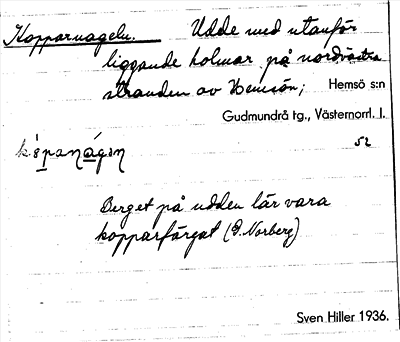 Kopparnageln. Udde med utanför
liggande holmar på nordvästra
stranden av Hemsön; Hemsö s:n
Gudmundrå tg., Västernorrl. l.
52
Berget på udden lär vara
kopparfärgat (E. Norberg)
Sven Hiller 1936.